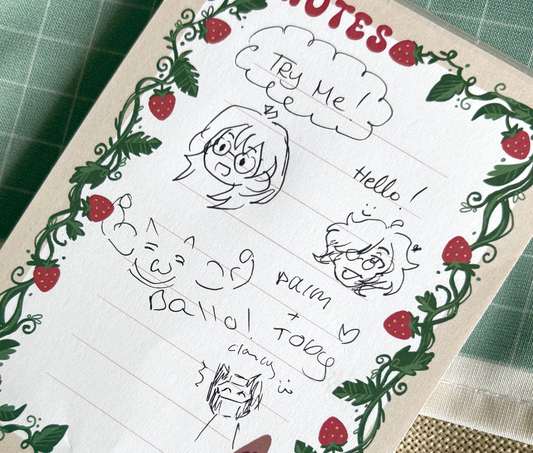 NOTES
Try Me!
Hello!
Ballo!
palm
+
Toby
clancy